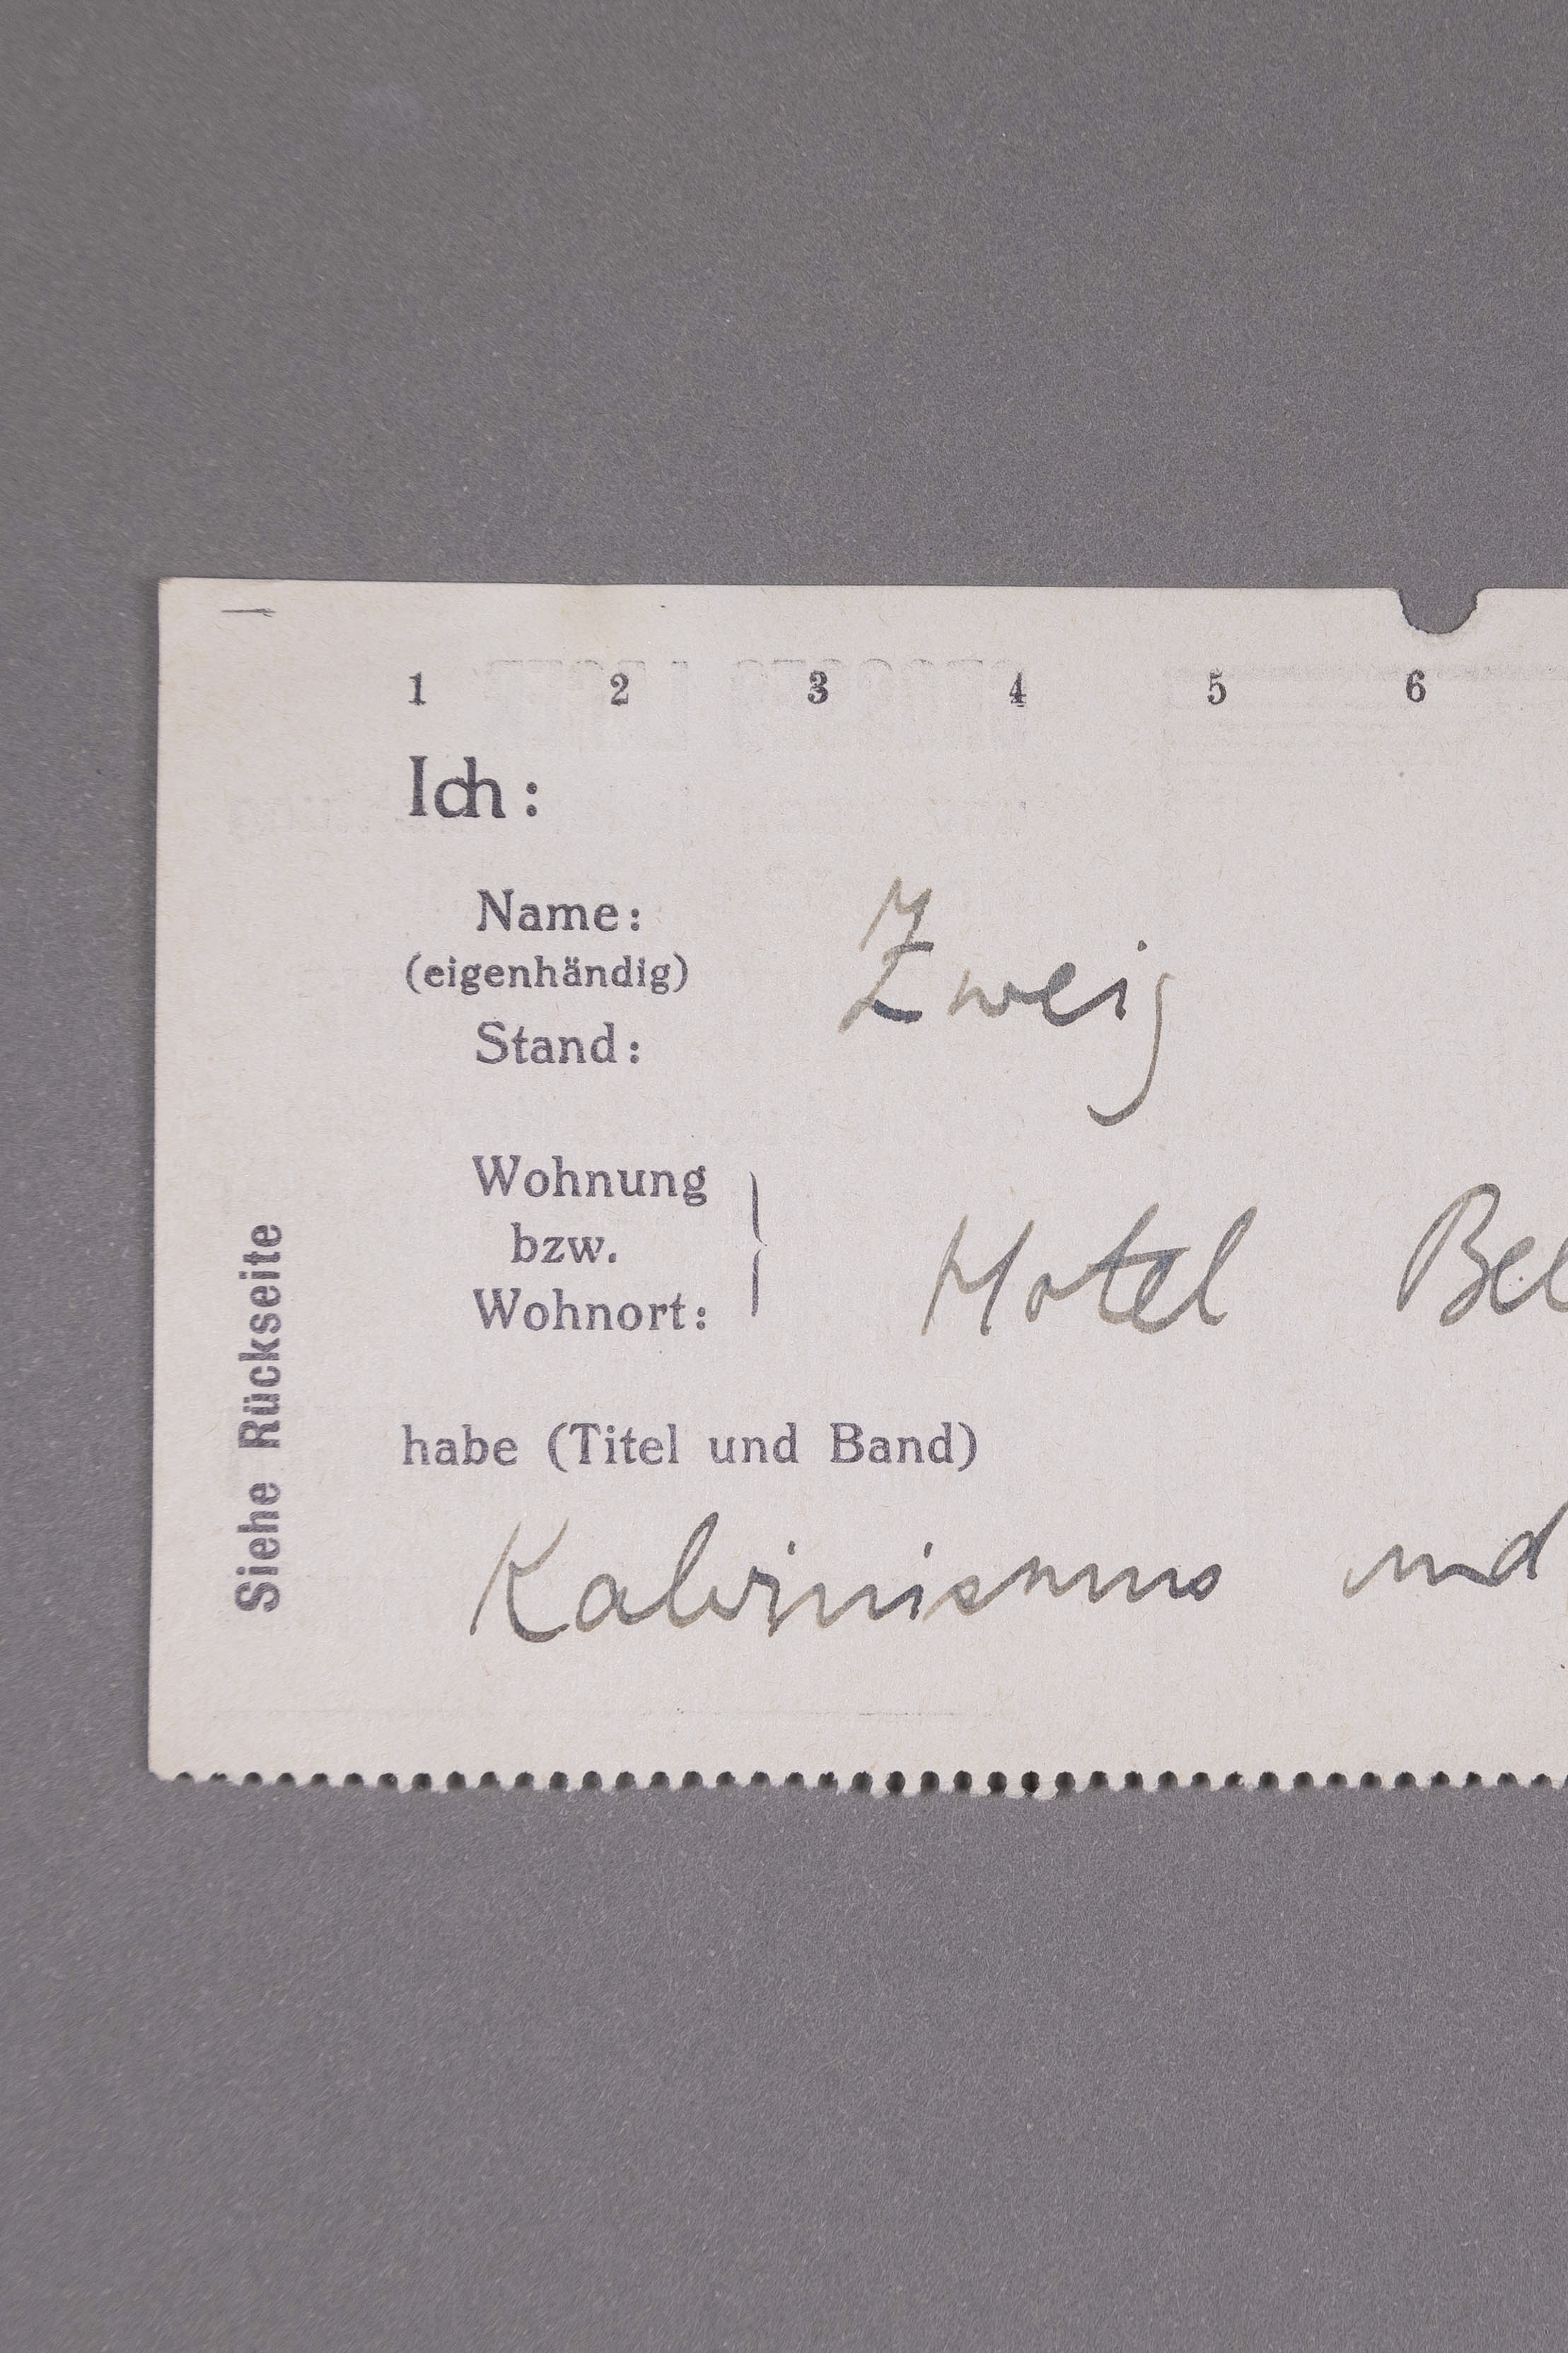 1 2 3 4 5 6
Ich:
Name: Zweig
(eigenhändig)
Stand:
Wohnung
bzw.
Wohnort: Hotel Bel
habe (Titel und Band)
Kalvinismus und
Siehe Rückseite